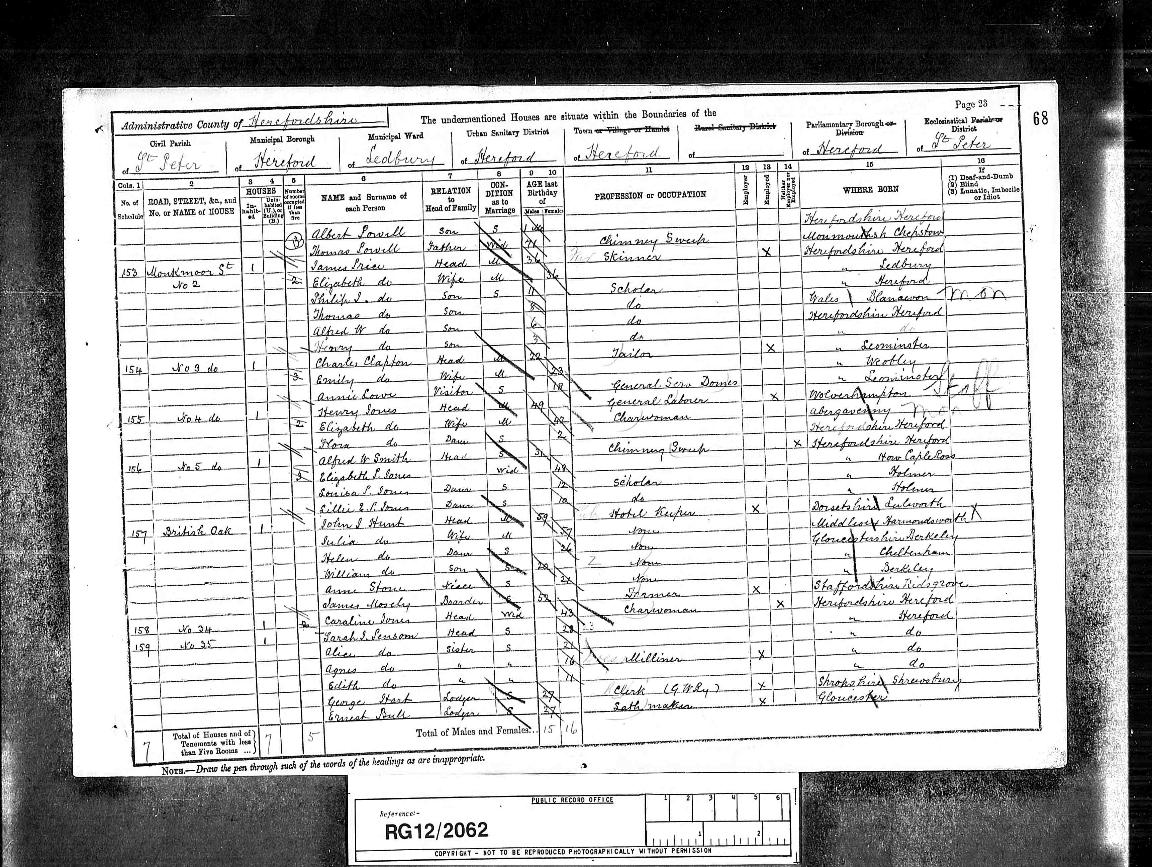 Page 23
68
Administrative County of Herefordshire
The undermentioned Houses are situate within the Boundaries of the
Civil Parish
of St Peter
Municipal Borough
of Hereford
Municipal Ward
of Ledbury
Urban Sanitary District
of Hereford
Town or Village or Hamlet
of Hereford
Rural Sanitary District
of
Parliamentary Borough or Division
of Hereford
Ecclesiastical Parish or District
of St Peter
Cols. 1 2 3 4 5 6 7 8 9 10 11 12 13 14 15 16
No. of Schedule
ROAD, STREET, &c., and No. or NAME of HOUSE
HOUSES
Inhabited
Uninhabited (U.), or Building (B.)
Number of rooms occupied if less than five
NAME and Surname of each Person
RELATION to Head of Family
CONDITION as to Marriage
AGE last Birthday of
Males Females
PROFESSION or OCCUPATION
Employer
Employed
Neither Employer nor Employed
WHERE BORN
If (1) Deaf-and-Dumb (2) Blind (3) Lunatic, Imbecile or Idiot
Albert Powell Son S Herefordshire Hereford
Thomas Powell Father Wid 71 Chimney Sweep Monmouthsh Chepstow
153 Monkmoor St 1 James Price Head M 36 Skinner X Herefordshire Hereford
No 2 Elizabeth do Wife M 36 " Ledbury
Philip J. do Son S 11 Scholar " Hereford
Thomas do Son do Wales Blanavon mon
Alfred W do Son 6 do Herefordshire Hereford
Henry do Son do " do
154 No 3 do 1 Charles Clapton Head M 22 Tailor X " Leominster
Emily do Wife M 23 " Weobley
Annie Lowe Visitor S 18 General Serv Domes " Leominster
155 No 4 do 1 Henry Jones Head M 49 General Laborer X Wolverhampton Staff
Elizabeth do Wife M Charwoman Abergavenny mon
Flora do Daur S 2 Herefordshire Hereford
156 No 5 do 1 Alfred W Smith Head S Chimney Sweep X Herefordshire Hereford
Elizabeth S. Jones Wid 48 " How Caple Ross
Louisa P. Jones Daur S 12 Scholar " Holmer
Lillie E. P. Jones Daur S 10 do " Holmer
157 British Oak 1 John J Hunt Head M 59 Hotel Keeper X Dorsetshire Lulworth
Julia do Wife M 57 None Middlesex Harmondsworth X
Helen do Daur S 26 None Gloucestershire Berkeley
William do Son S None " Cheltenham
Anne Stone Niece S 21 None " Berkeley
James Mosely Boarder S 52 Farmer X Staffordshire Kidsgrove
158 No 34 1 Caroline Jones Head Wid 43 Charwoman X Herefordshire Hereford
159 No 35 1 Sarah J. Pensom Head S 28 " Hereford
Alice do Sister S 21 " do
Agnes do " " 16 Milliner X " do
Edith do " " 11 " do
George Hart Lodger S 27 Clerk (G.W.Ry) X Shropshire Shrewsbury
Ernest Bull Lodger S 27 Lath maker X Gloucester
7 Total of Houses and of Tenements with less than Five Rooms ... 7 5 Total of Males and Females... 15 16
NOTE.—Draw the pen through such of the words of the headings as are inappropriate.
PUBLIC RECORD OFFICE
1 2 3 4 5 6
Reference:-
RG12/2062
1 2
COPYRIGHT - NOT TO BE REPRODUCED PHOTOGRAPHICALLY WITHOUT PERMISSION